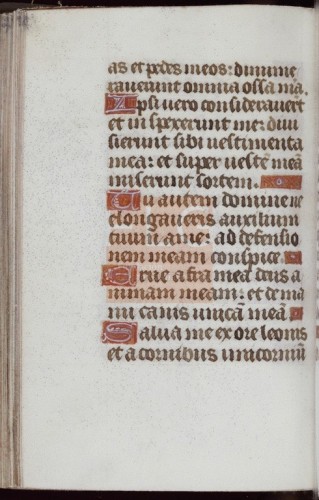 as et pedes meos: dinume
raverunt omnia ossa mā.
Ipsi vero consideraverūt
et inspexerunt me: divi
sierunt sibi vestimenta
mea: et super vestē meā
miserunt sortem.
Tu autem domine ne
elongaveris auxilium
tuum a me: ad defensio
nem meam conspice.
Erue a framea deus a
nimam meam: et de ma
nu canis unicā meā
Salva me ex ore leonis
et a cornibus unicorniū